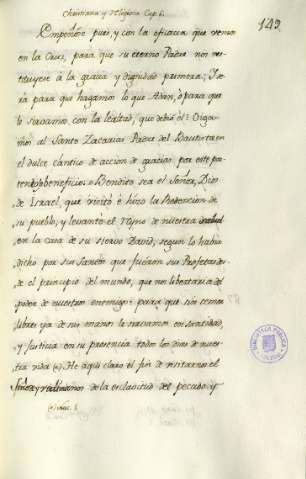 Christiana y Religiosa Cap. 6.
149.
Empeñóse pues, y con la eficacia que vemos
en la Cruz, para que su eterno Padre nos res-
tituyese à la gracia y dignidad primera; y se-
ria para que hagamos lo que Adan, ò para que
le sirvamos con la lealtad, que debió él? Oiga-
mos al Santo Zacarias Padre del Bautista en
el dulce cántico de accion de gracias por este
beneficio: Bendito sea el Señor, Dios
de Israel, que visitó è hizo la Redencion de
su pueblo; y levantó el Reyno de nuestra salud
en la casa de su siervo David, segun lo habia
dicho por sus Santos que fueron sus Profetas des-
de el principio del mundo, que nos libertaria del
poder de nuestros enemigos: para que sin temor
libres ya de sus manos le sirvamos en santidad,
y justicia en su presencia todos los dias de nues-
tra vida (a). He aqui claro el fin de visitarnos el
Señor, y redimirnos de la esclavitud del pecado, y
(a) Luc. 1.